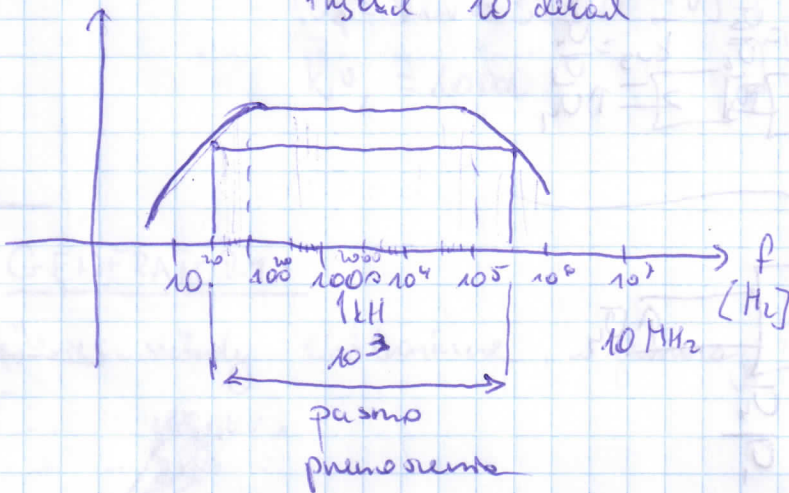 10 dekad
f
[Hz]
10 20 100 20 1000 2000 10⁴ 10⁵ 10⁶ 10⁷
1kH
10³
10 MHz
pasmo
przenoszenia